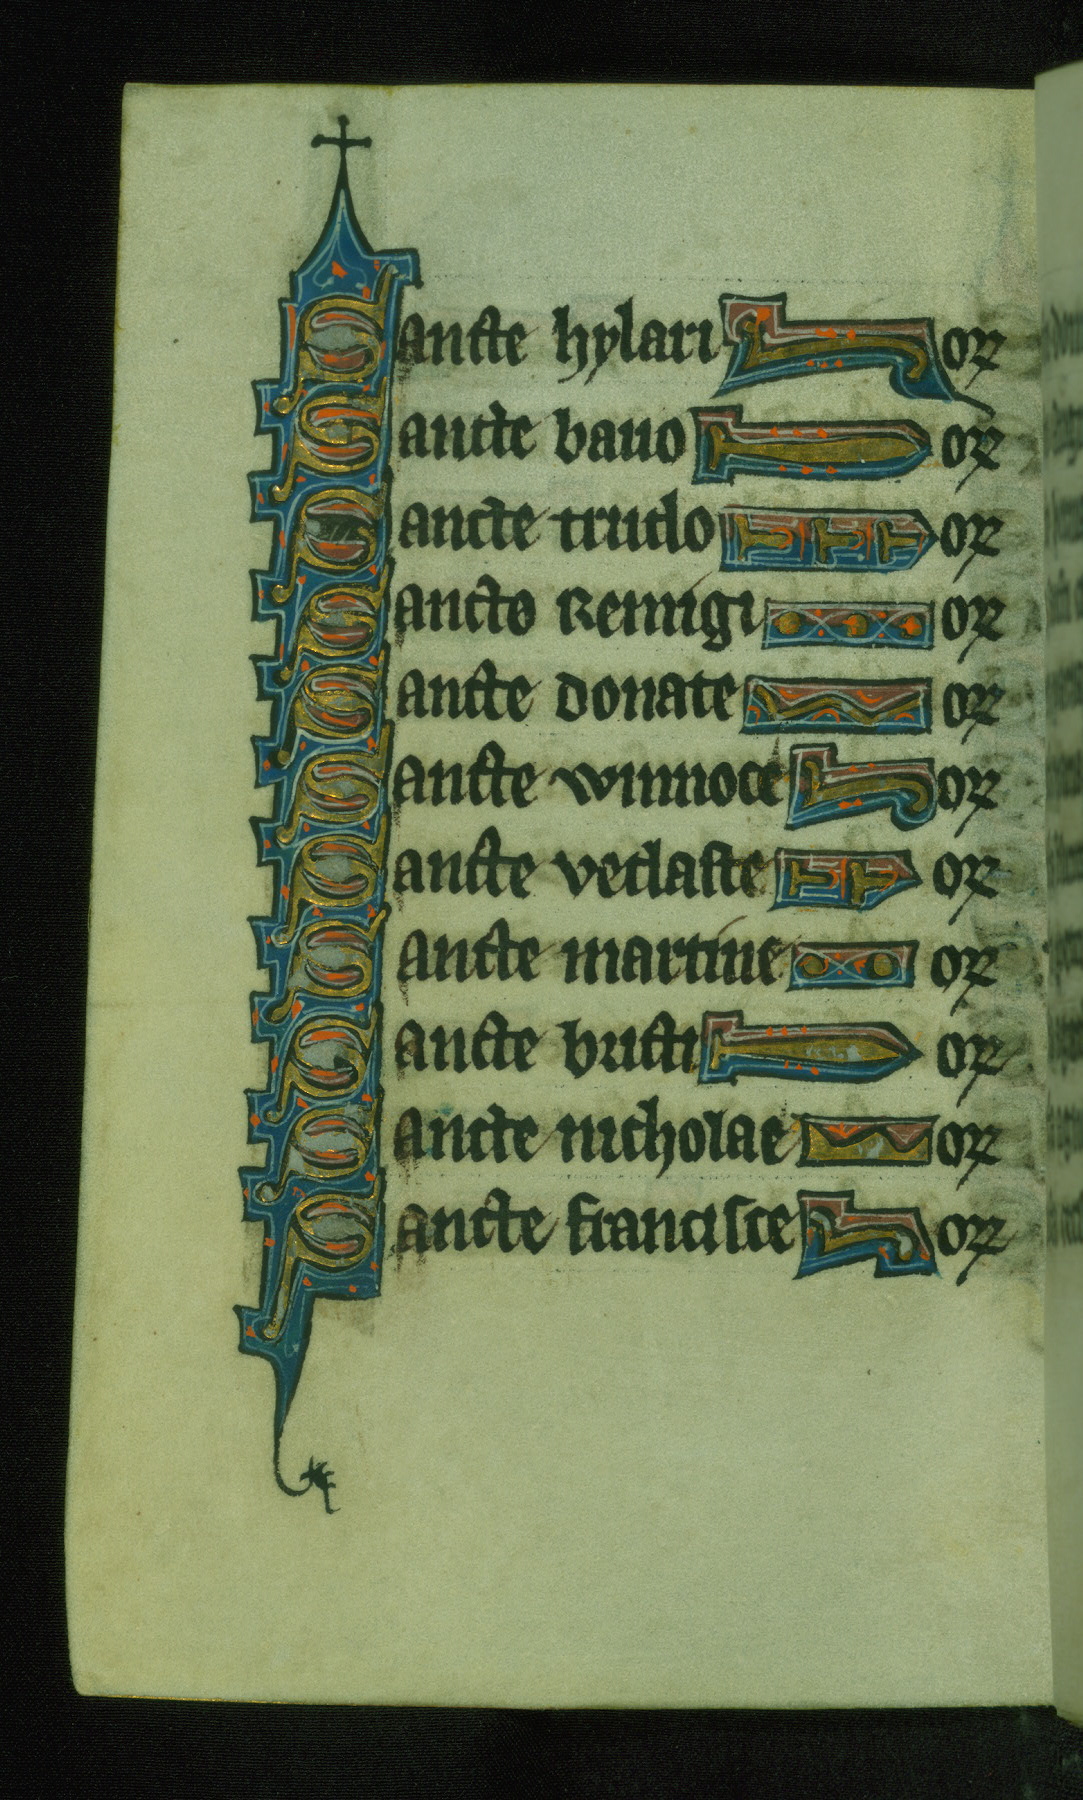 Sancte hylari or
Sancte bauo or
Sancte trudo or
Sancte Remigi or
Sancte donate or
Sancte winnoce or
Sancte vedaste or
Sancte martine or
Sancte bricti or
Sancte nicholae or
Sancte francisce or